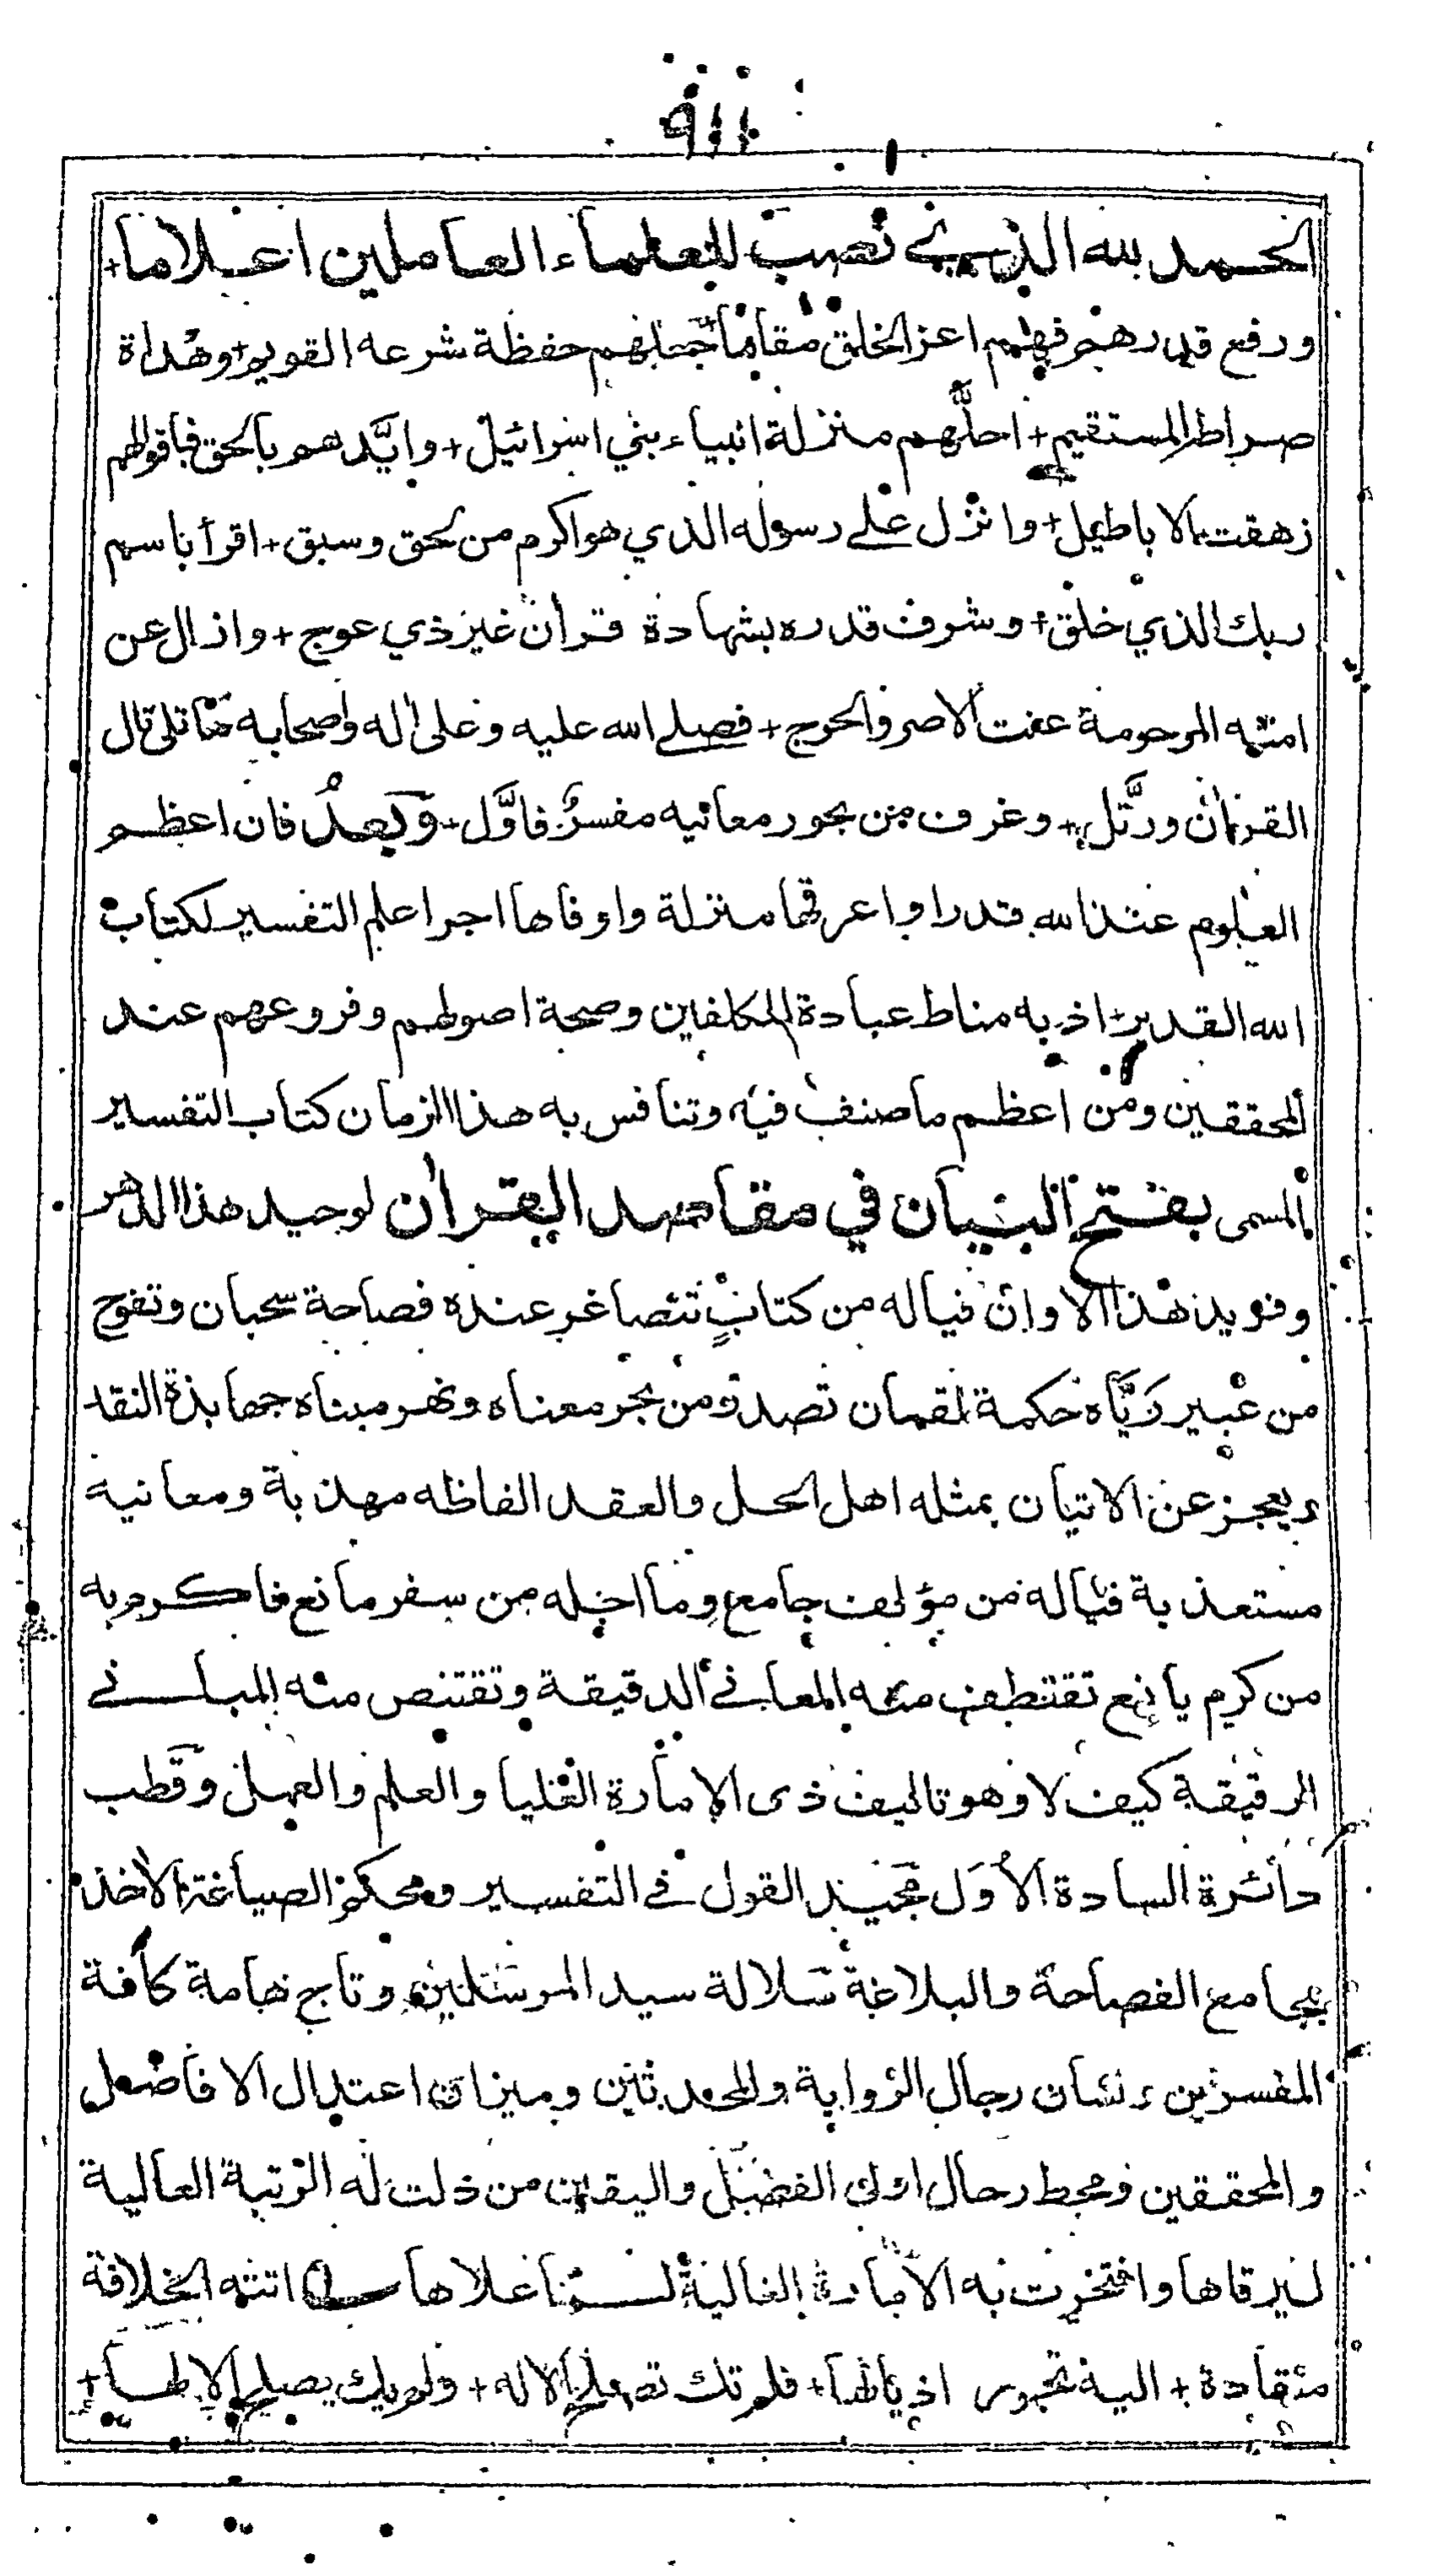 ٩١١
الحمد لله الذي نصب للعلماء العاملين اعلاما+
ورفع قدرهم فهم اعز الخلق مقاما جعلهم حفظة شرعه القويم+وهُداة
صراط المستقيم+ احلَّهم منزلة انبياء بني اسرائيل+ وايَّدهم بالحق فباقوالهم
زهقت الاباطيل+ وانزل على رسوله الذي هو اكرم من لحق وسبق+ اقرأ باسم
ربك الذي خلق+ وشرف قدره بشهادة قرآن غير ذي عوج+ وازال عن
امته المرحومة عنت الاصر والحرج+ فصلى الله عليه وعلى اله واصحابه ما تلى تال
القران ورتَّل+ وغرف من بحور معانيه مفسرٌ فاوَّل+ وَبعدُ فان اعظم
العلوم عند الله قدرا واعرقها منزلة واوفاها اجرا علم التفسير لكتاب
الله القدير+ اذ به مناط عبادة المكلفين وصحة اصولهم وفروعهم عند
المحققين ومن اعظم ما صنف فيه وتنافس به هذا الزمان كتاب التفسير
المسمى بفتح البيان في مقاصد القران لوحيد هذا الدهر
وفريد هذا الاوان فياله من كتابٍ تتصاغر عنده فصاحة سحبان وتفوح
من عبير رَيَّاه حكمة لقمان تصدر من بحر معناه ونهر مبناه جهابذة النقد
ويعجز عن الاتيان بمثله اهل الحل والعقد الفاظه مهذبة ومعانيه
مستعذبة فياله من مؤلف جامع وما اخاله من سفر مانع فاكرم به
من كرم يانع تقتطف منه المعاني الدقيقة وتقتنص منه المباني
الرقيقة كيف لا وهو تاليف ذى الامارة العليا والعلم والعمل وقطب
دائرة السادة الاُوَل مجيد القول في التفسير ومحكم الصياغة الاخذ
بمجامع الفصاحة والبلاغة سلالة سيد المرسلين وتاج هامة كافة
المفسرين رنسان رجال الرواية والمحدثين وميزان اعتدال الافاضل
والمحققين ومحط رحال اولى الفضل واليقين من ذلت له الرتبة العالية
ليرقاها وافتخرت به الامارة الغالية اعلاها اتته الخلافة
منقادة+ اليه تجرر اذيالها+ فلم تك تصلح الا له+ ولم يك يصلح الا لها+